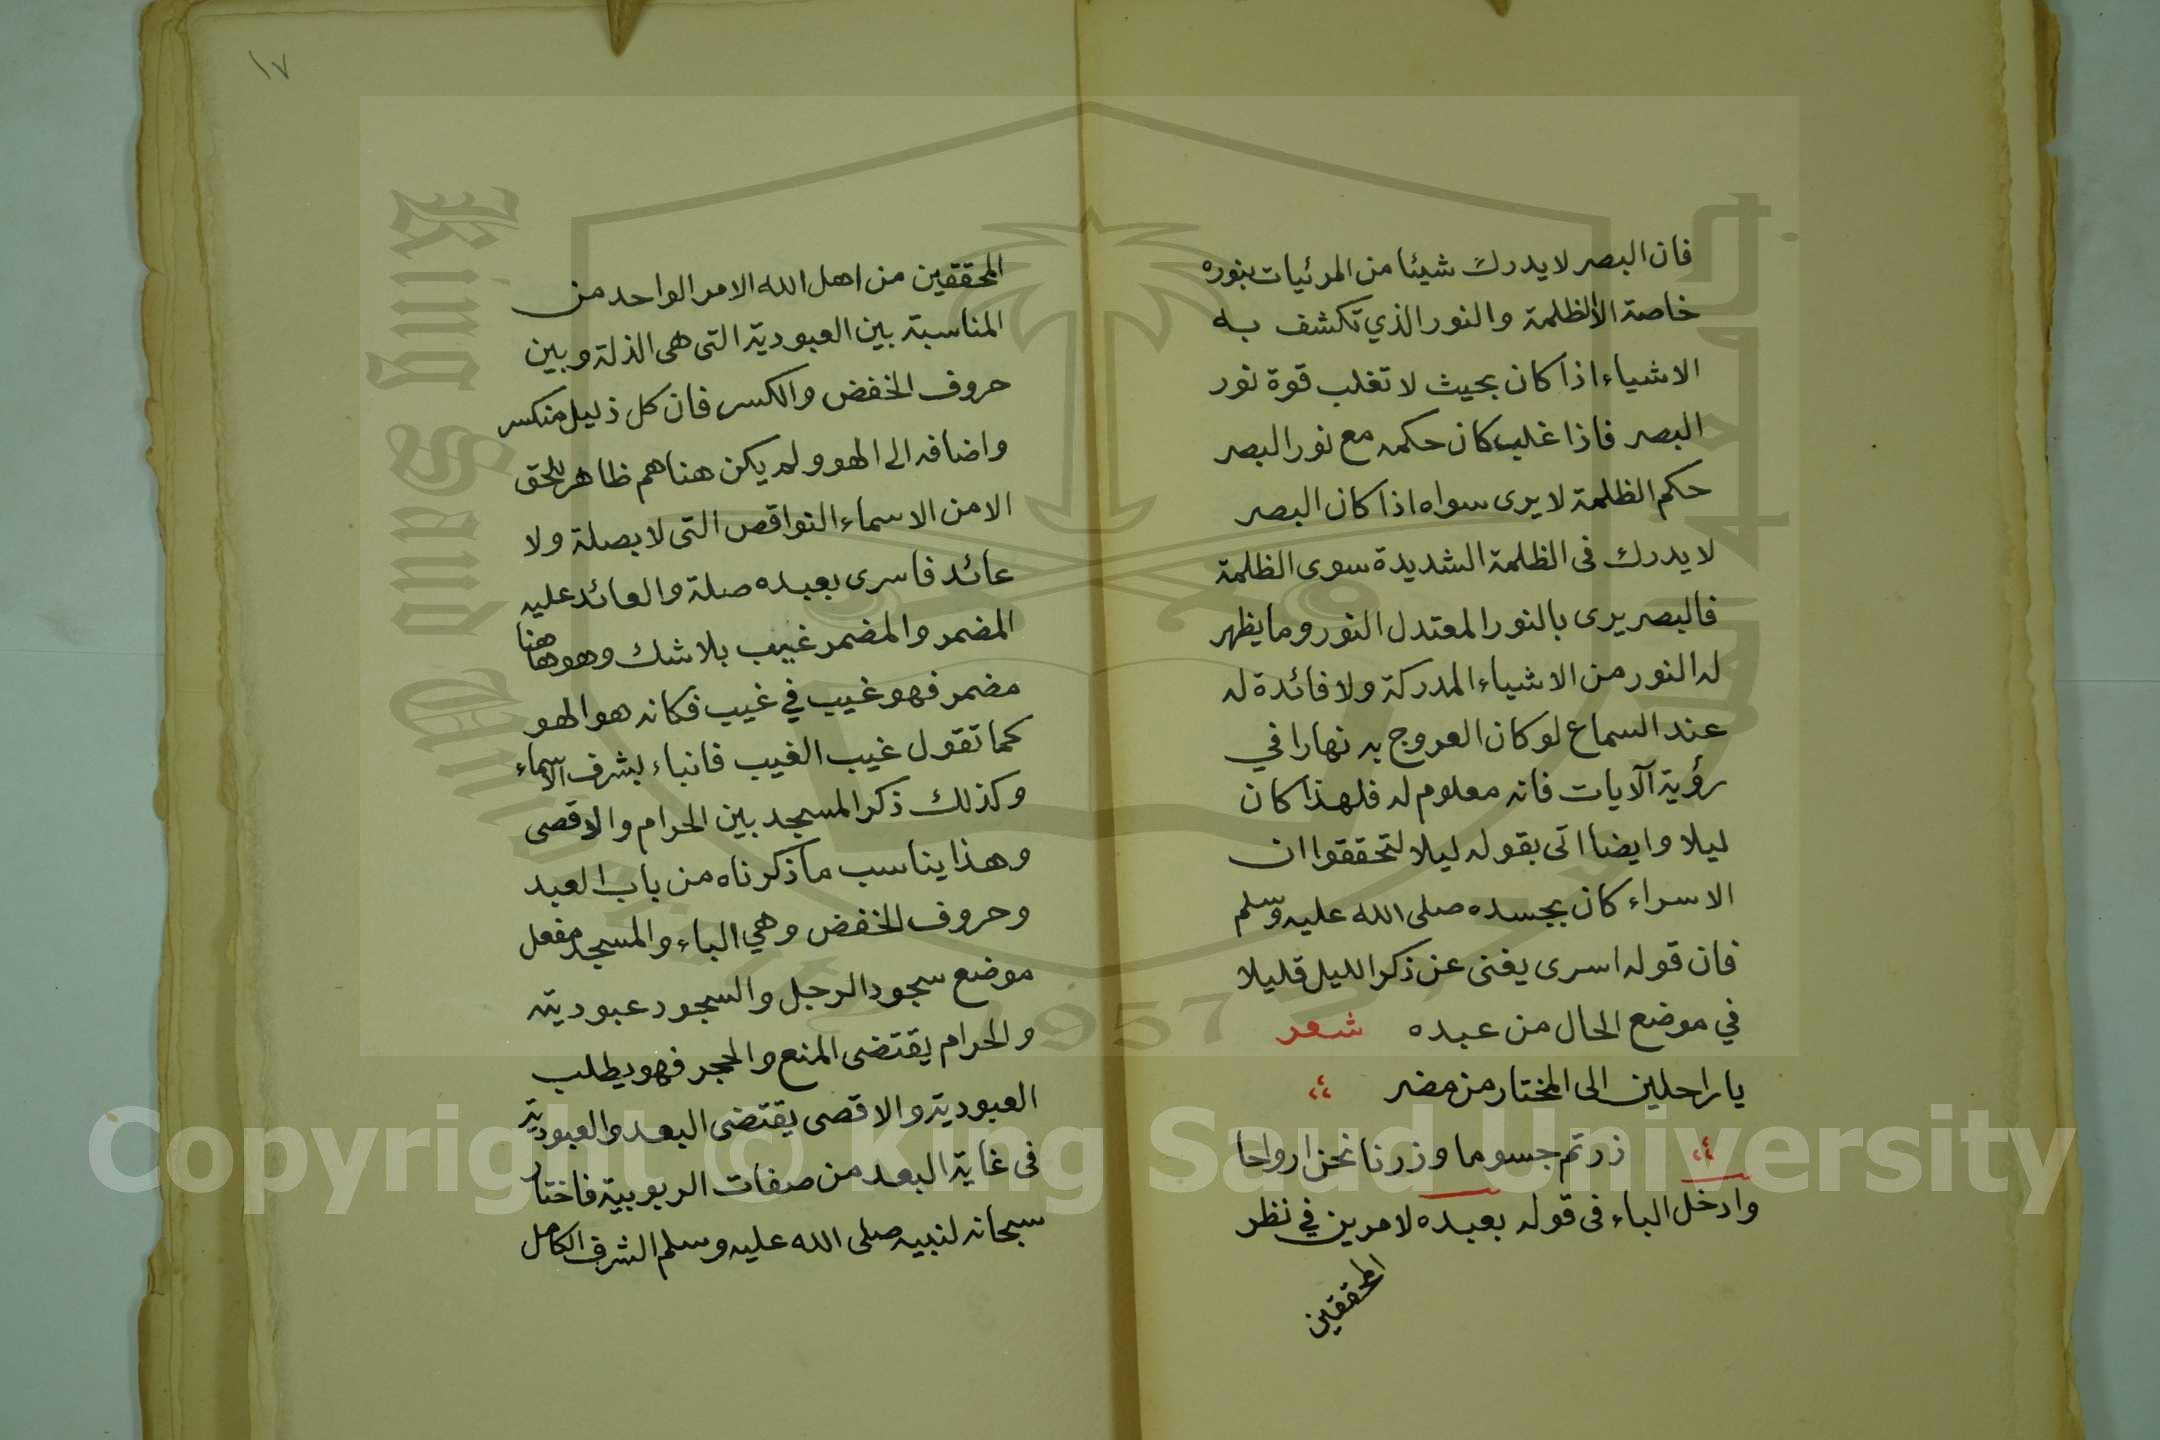 فان البصر لا يدرك شيئا من المرئيات بنوره
خاصة الا الظلمة والنور الذي تكشف به
الاشياء اذا كان بحيث لا تغلب قوة نور
البصر فاذا غلب كان حكمه مع نور البصر
حكم الظلمة لا يرى سواه اذا كان البصر
لا يدرك فى الظلمة الشديدة سوى الظلمة
فالبصر يرى بالنور المعتدل النور وما يظهر
له النور من الاشياء المدركة ولا فائدة له
عند السماع لو كان العروج به نهارا في
رؤية الآيات فانه معلوم له فلهذا كان
ليلا وايضا اتى بقوله ليلا لتحققوا ان
الاسراء كان بجسده صلى الله عليه وسلم
فان قوله اسرى يغنى عن ذكر الليل قليلا
في موضع الحال من عبده شعر
يا راحلين الى المختار من مضر
زرتم جسوما وزرنا نحن ارواحا
وادخل الباء فى قوله بعبده لامرين في نظر
المحققين
١٧
المحققين من اهل الله الامر الواحد من
المناسبة بين العبودية التى هى الذلة وبين
حروف الخفض والكسر فان كل ذليل منكسر
واضافه الى الهو ولم يكن هنا هم ظاهر للحق
الا من الاسماء النواقص التى لا بصلة ولا
عائد فاسرى بعبده صلة والعائد عليه
المضمر والمضمر غيب بلا شك وهو هاهنا
مضمر فهو غيب في غيب فكانه هو الهو
كما تقول غيب الغيب فانباء بشرف الاسماء
وكذلك ذكر المسجد بين الحرام والاقصى
وهذا يناسب ما ذكرناه من باب العبد
وحروف الخفض وهي الباء والمسجد مفعل
موضع سجود الرجل والسجود عبوديته
والحرام يقتضى المنع والحجر فهو يطلب
العبودية والاقصى يقتضى البعد والعبودية
فى غاية البعد من صفات الربوبية فاختار
سبحانه لنبيه صلى الله عليه وسلم الشرف الكامل
King Saud University
1957
Copyright © King Saud University